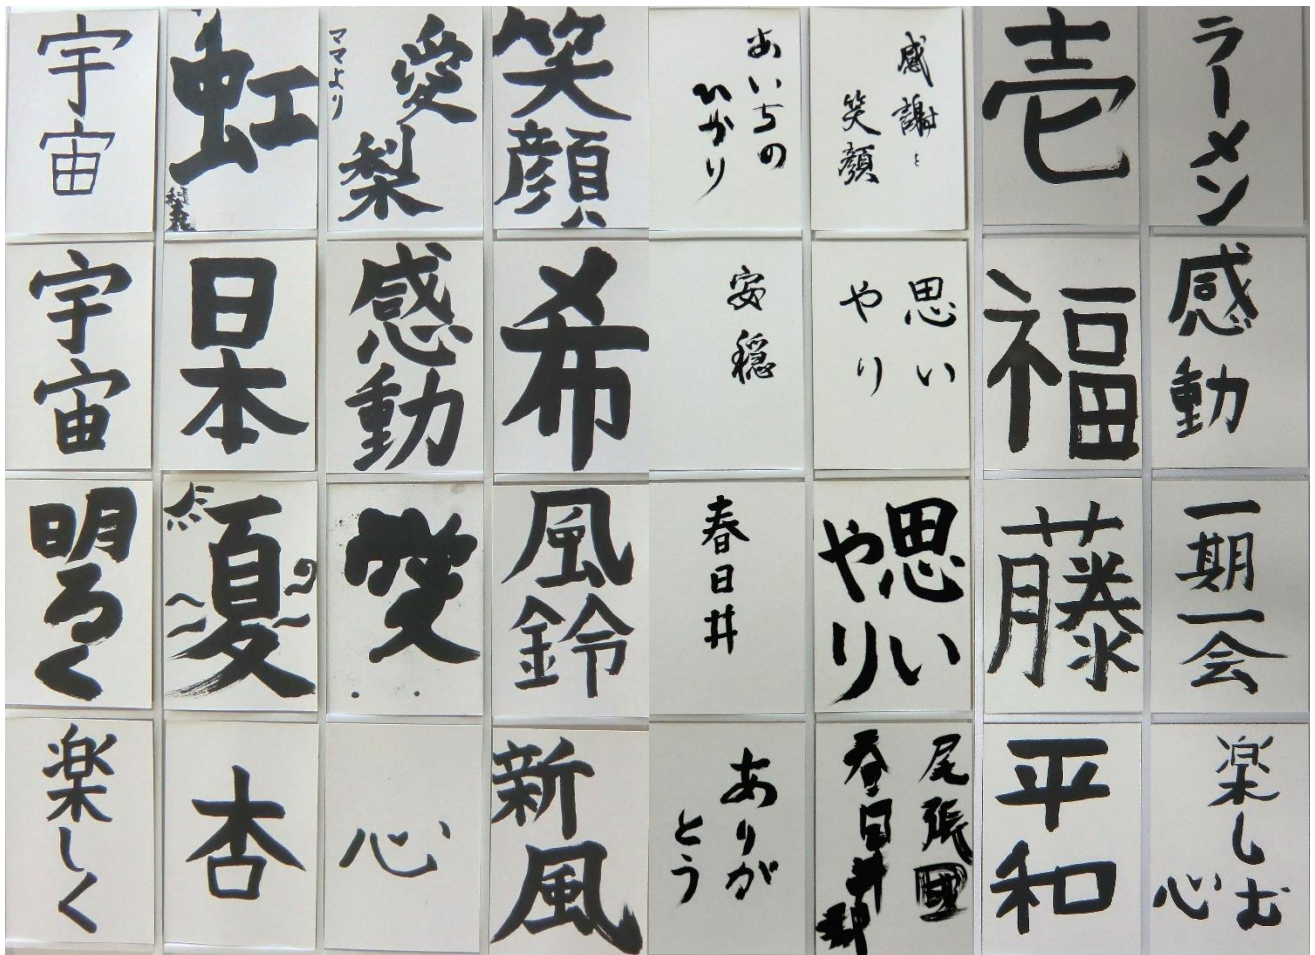 宇宙
虹
愛梨
ママより
笑顔
あいちの
ひかり
感謝と
笑顔
壱
ラーメン
宇宙
日本
感動
希
安穏
思い
やり
福
感動
明るく
夏
笑
風鈴
春日井
思い
やり
藤
一期一会
楽しく
杏
心
新風
ありが
とう
尾張國
春日井郡
平和
楽しむ
心